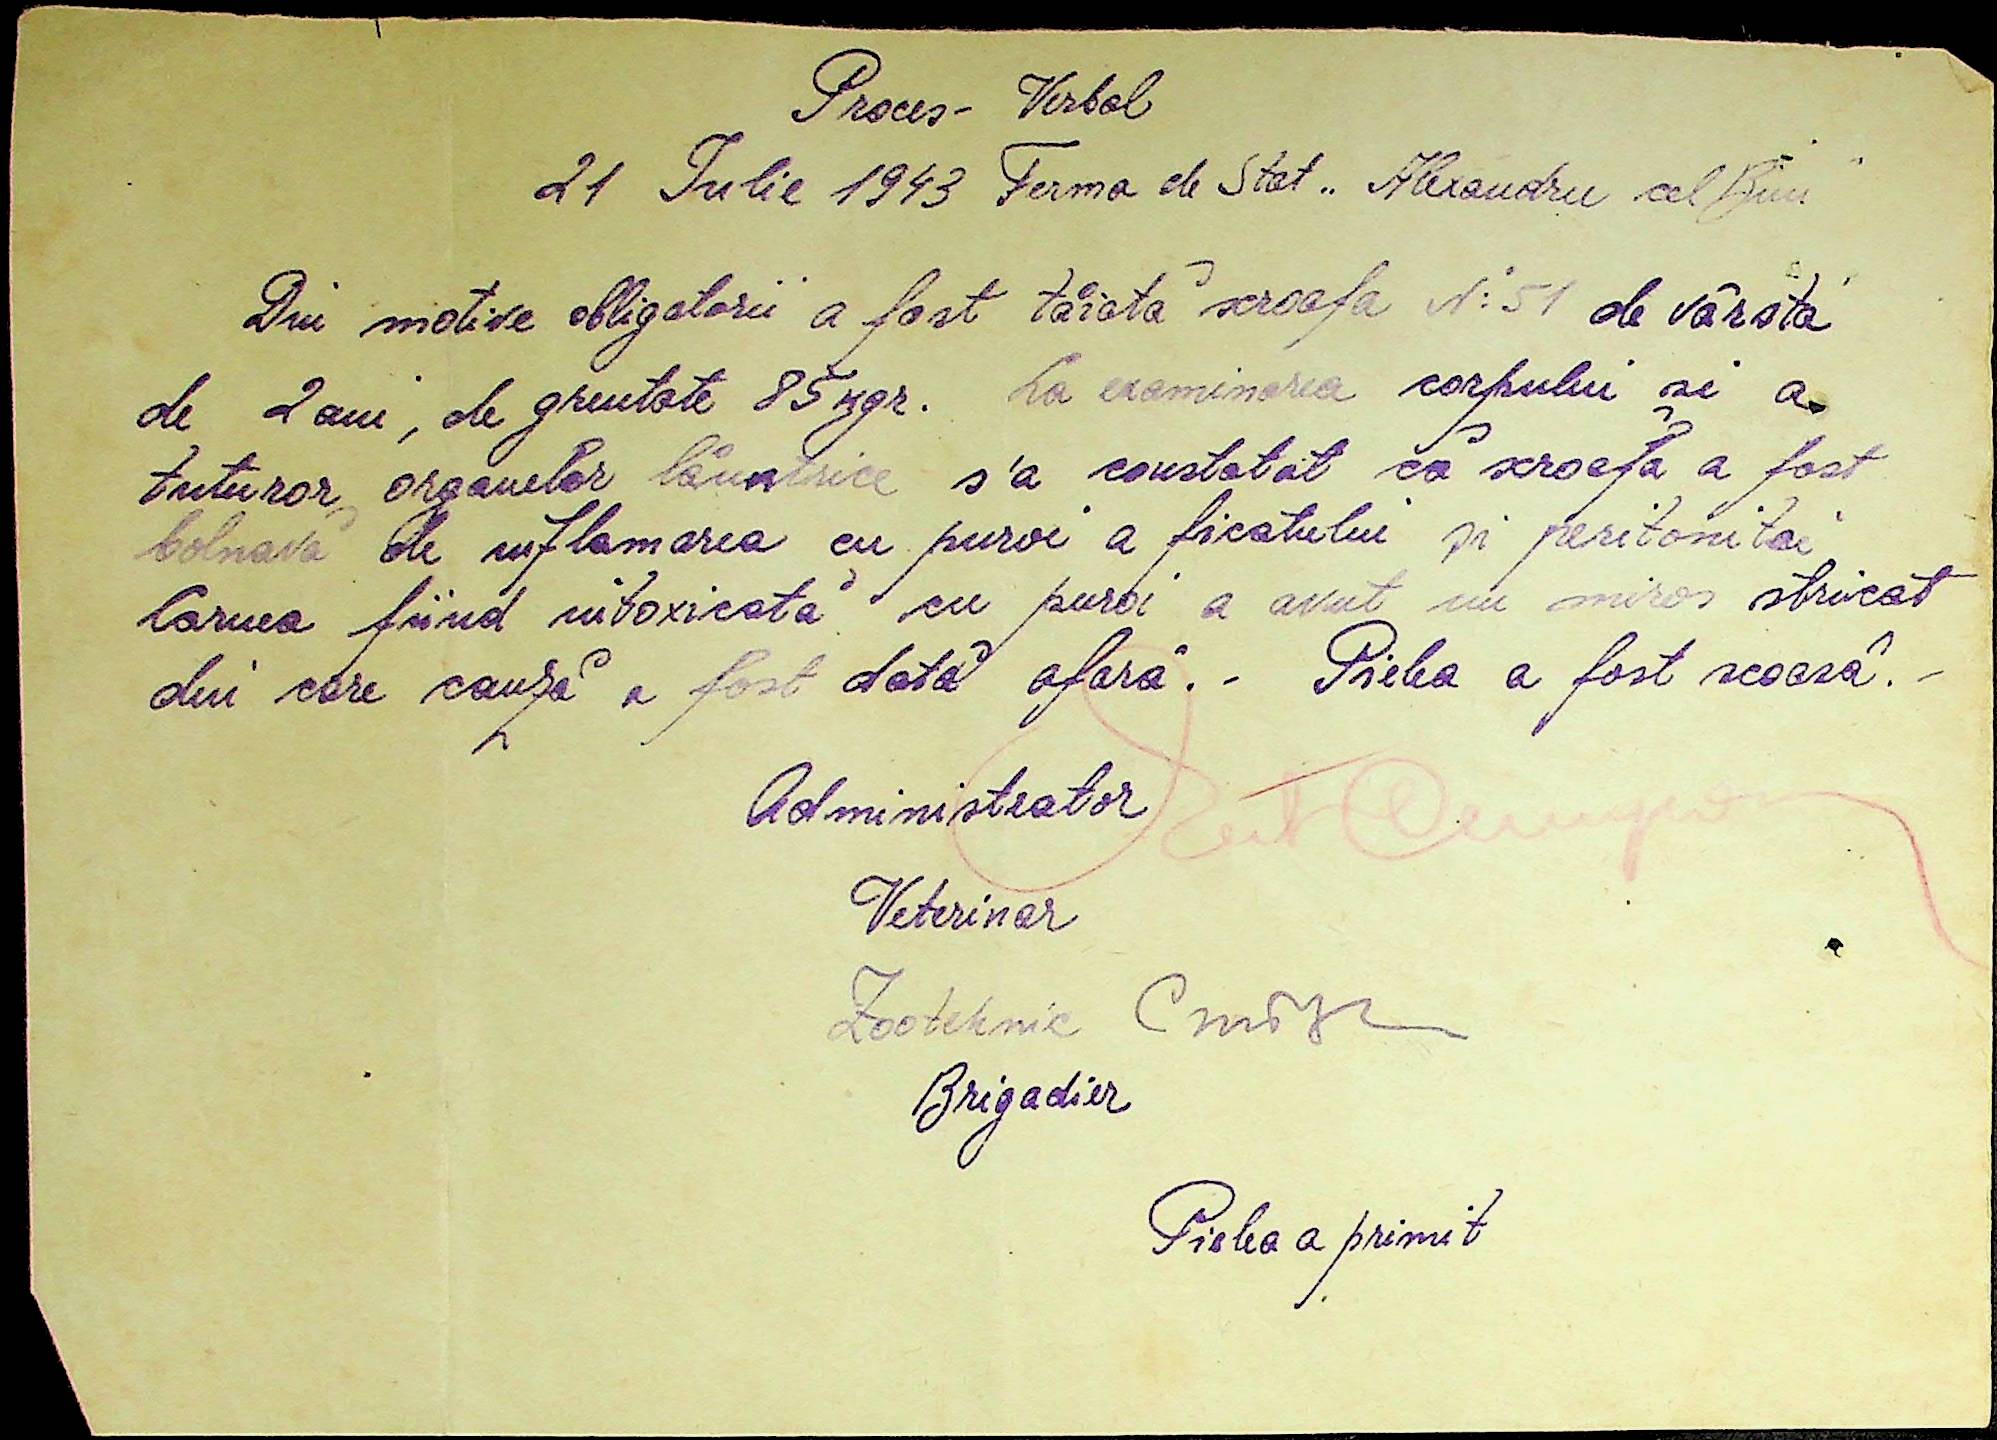 Proces-Verbal
21 Iulie 1943 Ferma de Stat „Alexandru cel Bun"
Din motive obligatorii a fost tăiată scroafa № 51 de vârstă
de 2 ani, de greutate 85 kgr. La examinarea corpului si a
tuturor organelor lăuntrice s'a constatat că scroafă a fost
bolnavă de inflamarea cu puroi a ficatului și peritonitai
Carnea fiind intoxicată cu puroi a avut un miros stricat
din care cauză a fost dată afară. - Pielea a fost scoasă. -
Administrator
Veterinar
Zootehnic
Brigadier
Pielea a primit